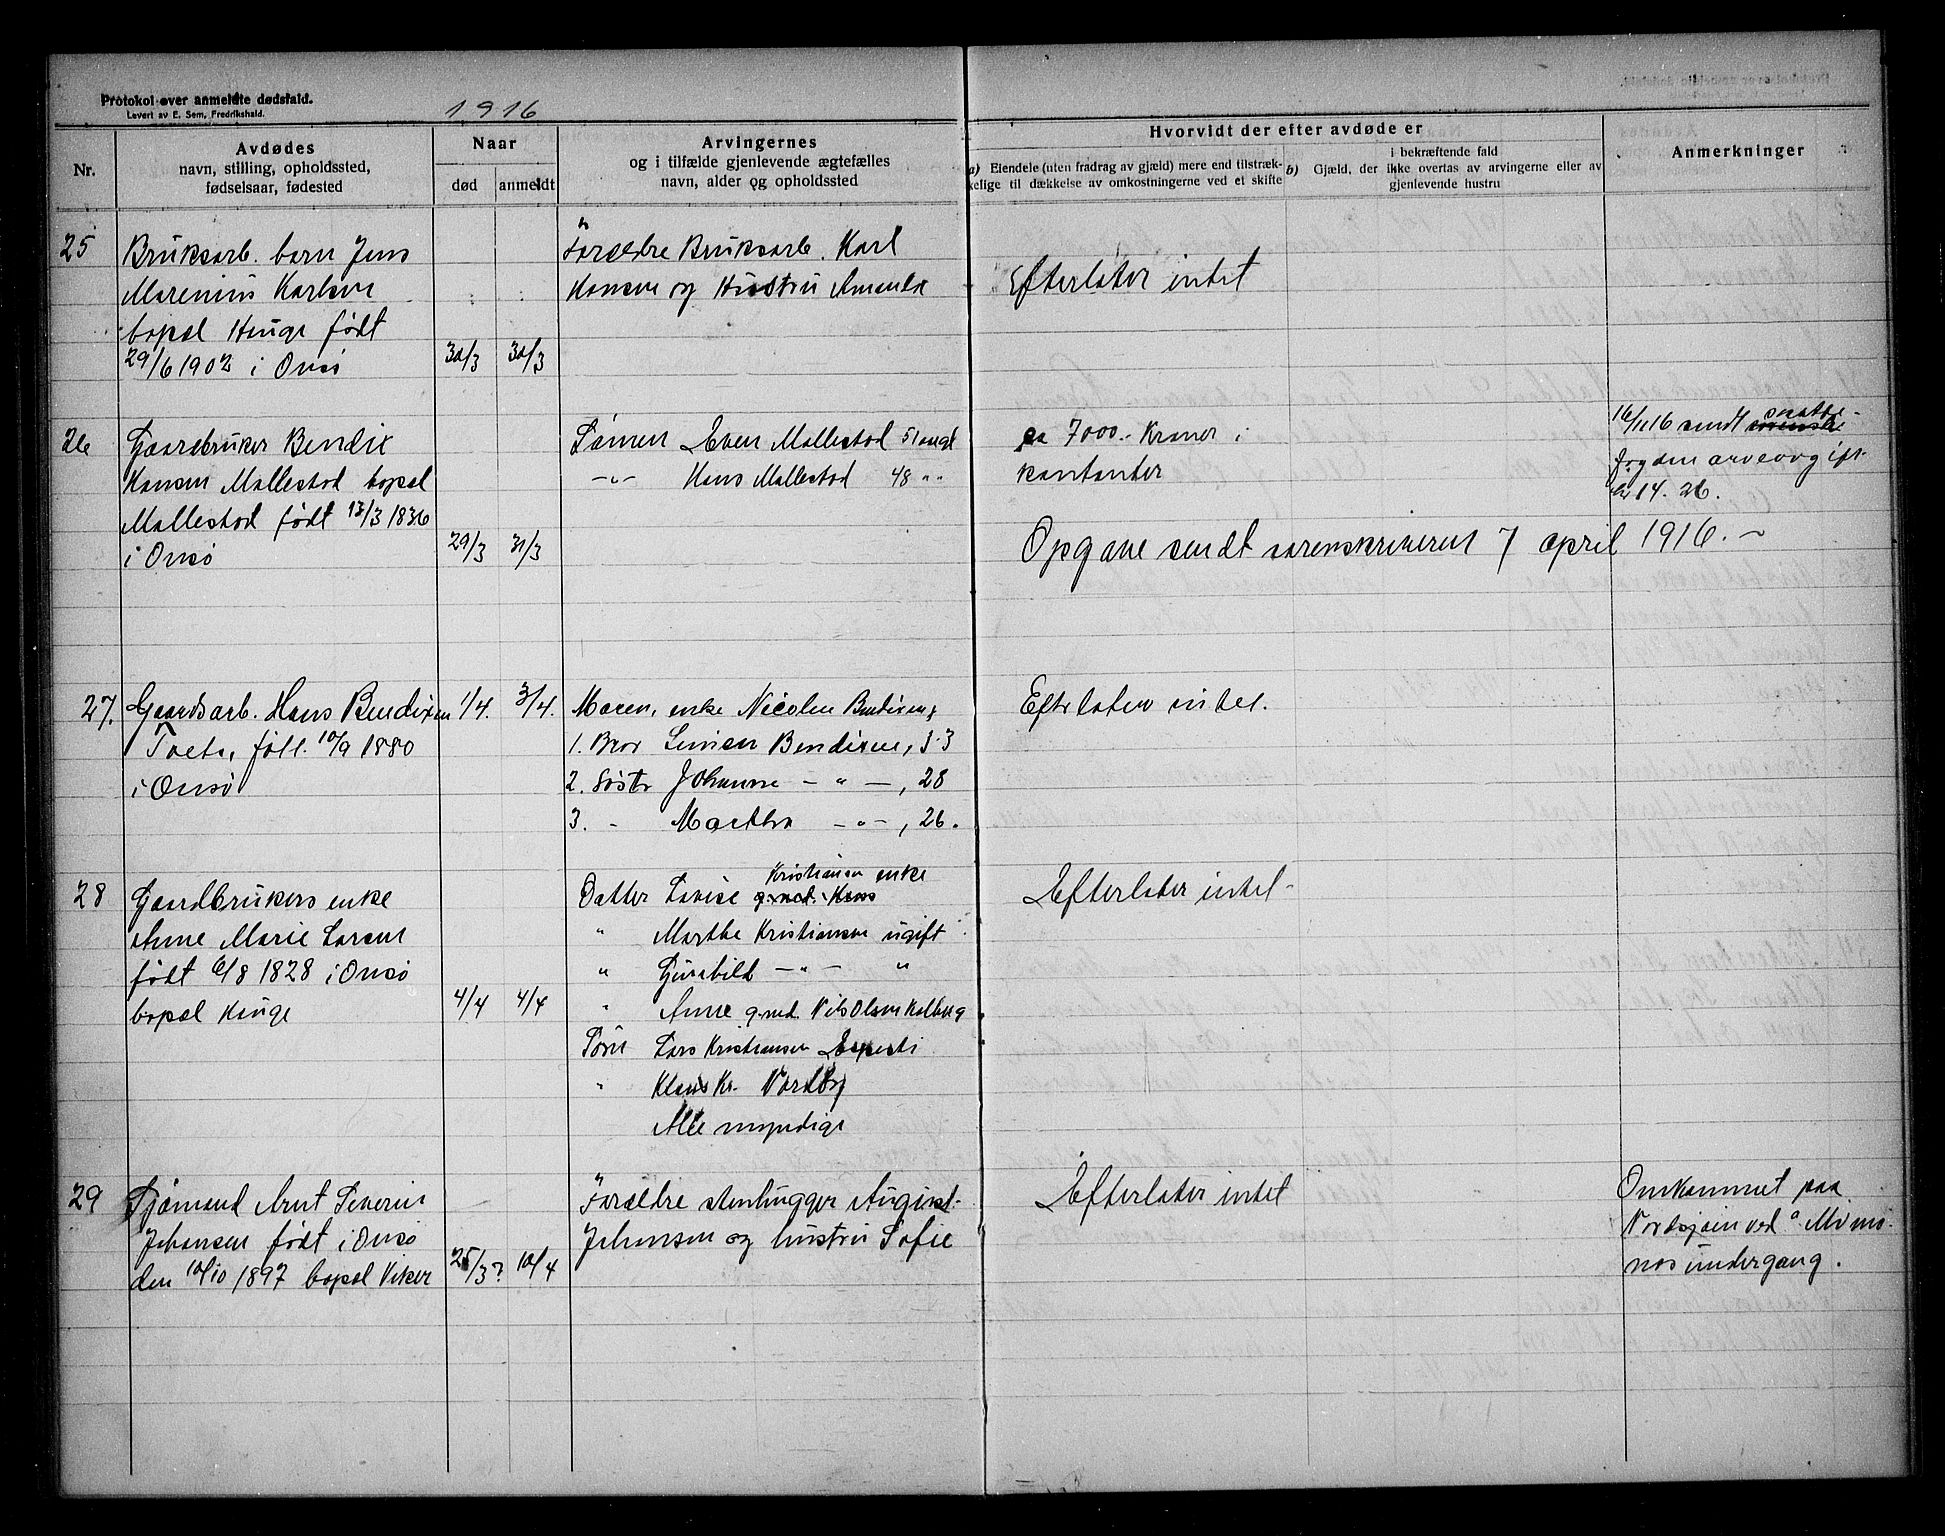 Protokol over anmeldte dødsfald.
Levert av E. Sem, Fredrikshald.
1916
Nr.
Avdødes
navn, stilling, opholdssted,
fødselsaar, fødested
Naar
død
anmeldt
Arvingernes
og i tilfælde gjenlevende ægtefælles
navn, alder og opholdssted
Hvorvidt der efter avdøde er
a) Eiendele (uten fradrag av gjæld) mere end tilstræk-
kelige til dækkelse av omkostningerne ved et skifte
b) Gjæld, der ikke overtas av arvingerne eller av
i bekræftende fald
gjenlevende hustru
Anmerkninger
25
Bruksarb. barn Jens
Marenius Karlsen
bopæl Hauge født
29/6 1902 i Onsø
30/3
30/3
Forældre Bruksarb. Karl
Hansen og Hustru Amanda
Efterlater intet
26
Gaardbruker Bendix
Hansen Mallestad bopæl
Mallestad født 13/3 1836
i Onsø
29/3
31/3
Sønnen Even Mallestad 51 aar
-"- Hans Mallestad 48 " "
ca 7000.- Kroner i
kontanter
16/1116 sendt
arveavgift
Opgave sendt sorenskriveren 7 april 1916. -
27.
Gaardsarb. Hans Bendixen
født. 10/9 1880
i Onsø
1/4.
3/4.
Moren, enke Nicoline Bendixen,
1. Bror Simen Bendixen, 33
2. Søst. Johanne - " - , 28
3. - Martha - " - , 26.
Efterlater intet.
28
Gaardbrukers enke
Anne Marie Larsen
født 6/8 1828 i Onsø
bopæl Hauge
4/4
4/4
Datter Lovise Kristiansen enke
g. med. Hans
" Marthe Kristiansen ugift
" Gunhild - " - "
" Anne g. med. Nils Olsen Kolberg
Sønn Lars Kristiansen
" Klaus Kr. Nordby
Alle myndige
Efterlater intet -
29
Sjømand Arnt Severin
Johansen født i Onsø
den 10/10 1897 bopæl Viker
25/3?
10/4
Forældre stenhugger August
Johansen og hustru Sofie
Efterlater intet
Omkommet paa
Nordsjøen ved
undergang.